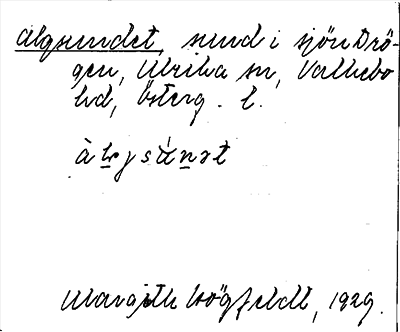 Algsundet, sund i sjön Drö-
gen, Ulrika sn, Vallebo
hd, Österg. l.
Margith Högfeldt, 1929.